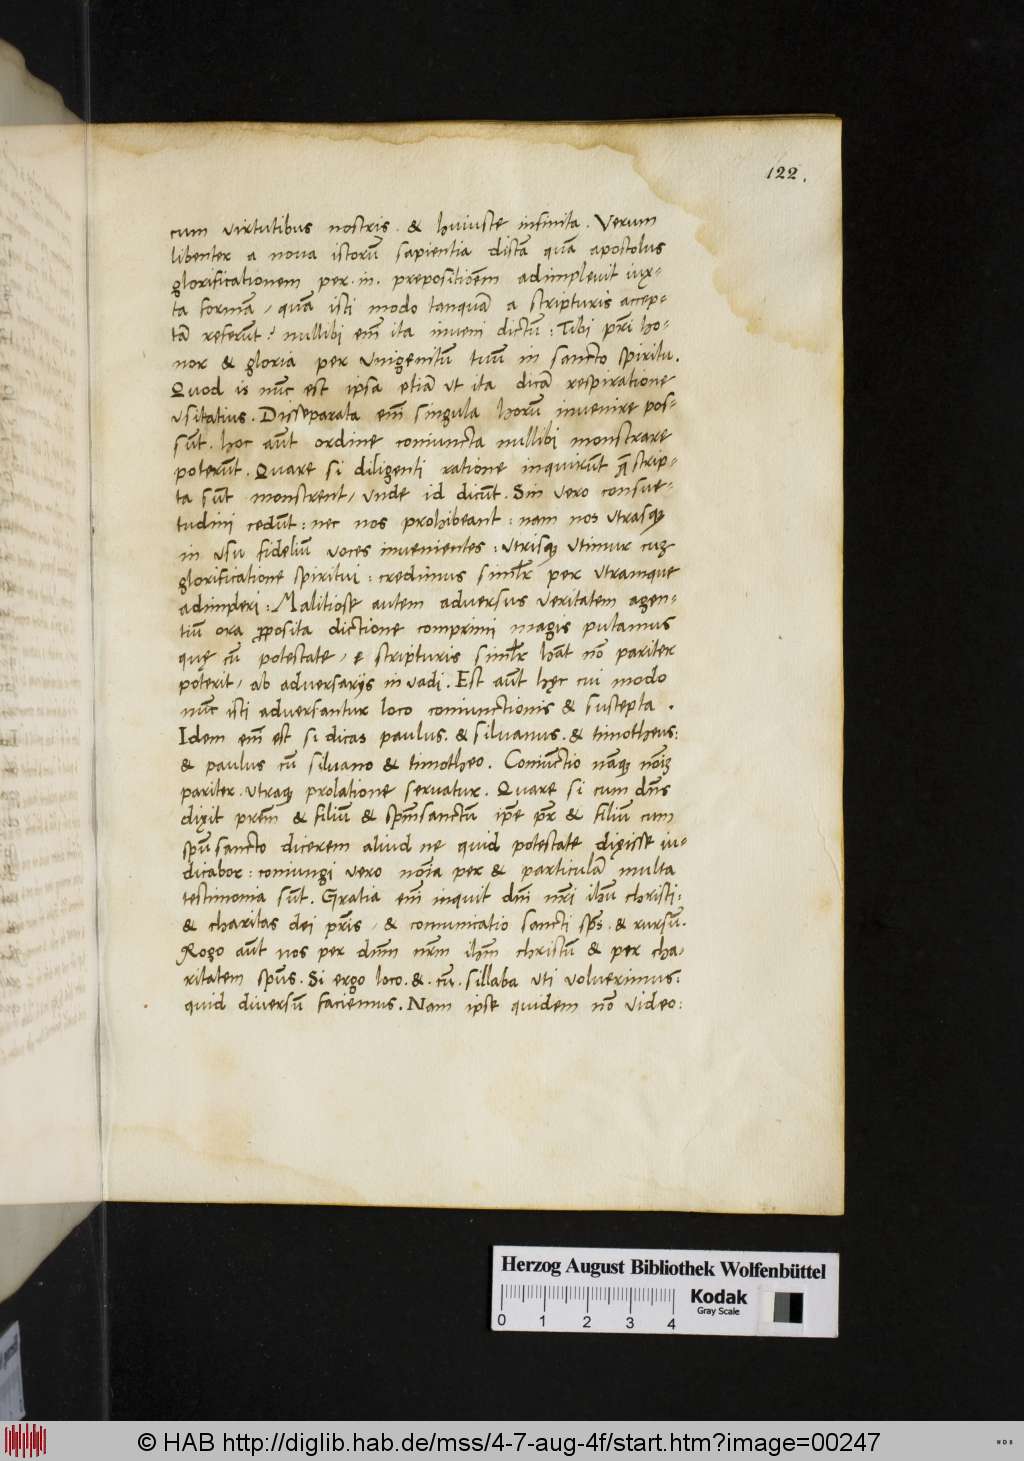 122.
cum virtutibus nostris . & huiuste infinita . Verum
libenter a noua istorū sapientia dictā quā apostolus
glorificationem per . in . prepositiōēm adimpleuit iux-
ta formā / quā isti modo tanquā a scripturis accep-
tā referūt ? nullibi em̄ ita inueni dictū : Tibi pr̄i ho-
nor & gloria per Vnigenitū tuū in sancto spiritu .
Quod is nūc est ipsa etiā vt ita dicā respiratione
vsitatius . Disseparata em̄ singula horū inuenire pos-
sūt . hoc aūt ordine coniuncta nullibi monstrare
poterūt . Quare si diligenti ratione inquirūt q̄ scrip-
ta sūt monstrent / vnde id dicūt . Sin vero consue-
tudini cedūt : nec nos prohibeant : nam nos vtrasq
in vsu fideliū voces inuenientes : vtrisq vtimur cuz
glorificatione spiritui : credimus siml̄r per vtramque
adimpleri : Malitiose autem aduersus veritatem agen-
tiū ora proposita dictione comprimi magis putamus
que cū potestate / e scripturis siml̄r hāt nō pariter
poterit / ab aduersarijs inuadi . Est aūt hęc cui modo
nūc isti aduersantur loco coniunctionis & suscepta .
Idem em̄ est si dicas paulus . & siluanus . & timotheus :
& paulus cū siluano & timotheo . Coniūctio nāq nōiz
pariter . vtraq prolatione seruatur . Quare si cum dn̄s
dixit prēm & filiū & spm̄ sanctū ipē pr̄ & filiū cum
spū sancto dicerem aliud ne quid potestate dixisse iu-
dicabor : coniungi vero nōīa per & particulā multa
testimonia sūt . Gratia em̄ inquit dn̄i nr̄i ihū christi :
& charitas dei pr̄is / & comunicatio sancti sp̄s . & rursū .
Rogo aūt vos per dnm̄ nr̄m ihm̄ christū & per cha-
ritatem spūs . Si ergo loco . & . cū . sillaba vti voluerimus .
quid diuersū faciemus . Nam ipse quidem nō video :
Herzog August Bibliothek Wolfenbüttel
0 1 2 3 4
Kodak
Gray Scale
© HAB http://diglib.hab.de/mss/4-7-aug-4f/start.htm?image=00247